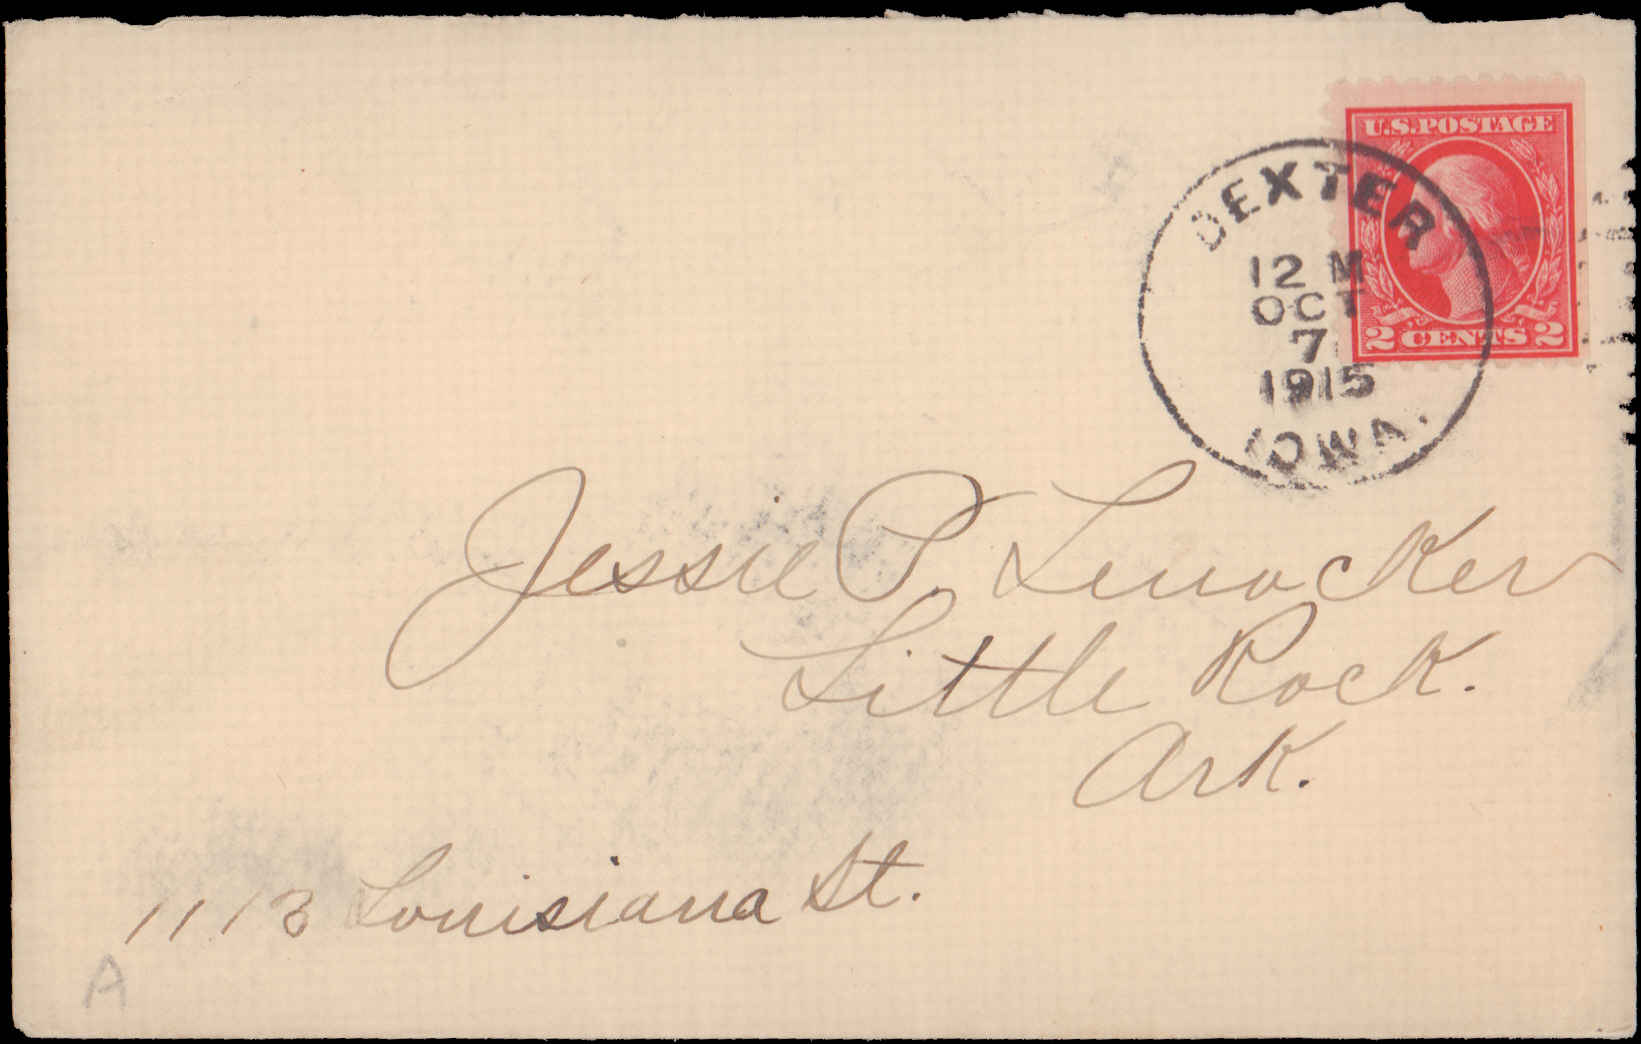 U.S. POSTAGE
2 CENTS 2
DEXTER
12 M
OCT
7
1915
IOWA.
Jessie P. Lenocker
Little Rock.
Ark.
1113 Louisiana St.
A